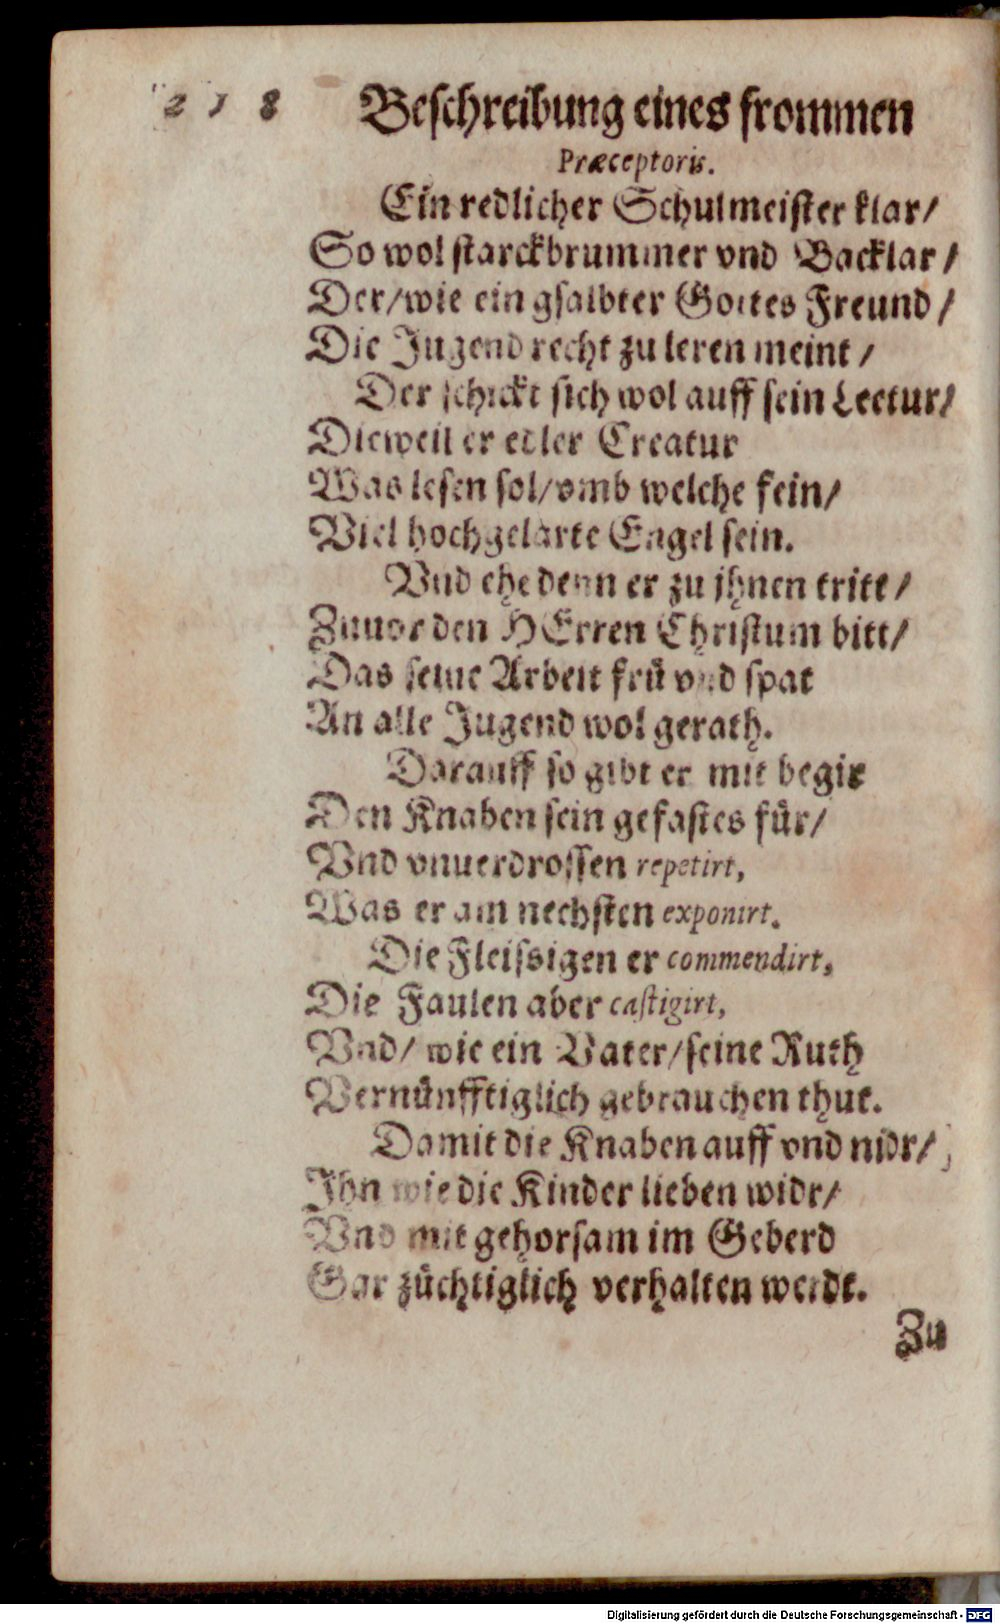 218 Beschreibung eines frommen
Præceptoris.
Ein redlicher Schulmeister klar/
So wol starckbrummer vnd Backlar/
Der/wie ein gsalbter Gottes Freund/
Die Jugend recht zu leren meint/
Der schickt sich wol auff sein Lectur/
Dieweil er edler Creatur
Was lesen sol/vmb welche fein/
Viel hochgelarte Engel sein.
Vnd ehe denn er zu jhnen tritt/
Zuuor den HErren Christum bitt/
Das seine Arbeit frü vnd spat
An alle Jugend wol gerath.
Darauff so gibt er mit begir
Den Knaben sein gefastes für/
Vnd vnuerdrossen repetirt,
Was er am nechsten exponirt.
Die Fleissigen er commendirt,
Die Faulen aber castigirt,
Vnd/ wie ein Vater/seine Ruth
Vernünfftiglich gebrauchen thut.
Damit die Knaben auff vnd nidr/
Ihn wie die Kinder lieben widr/
Vnd mit gehorsam im Geberd
Gar züchtiglich verhalten werdt.
Zu
Digitalisierung gefördert durch die Deutsche Forschungsgemeinschaft - DFG